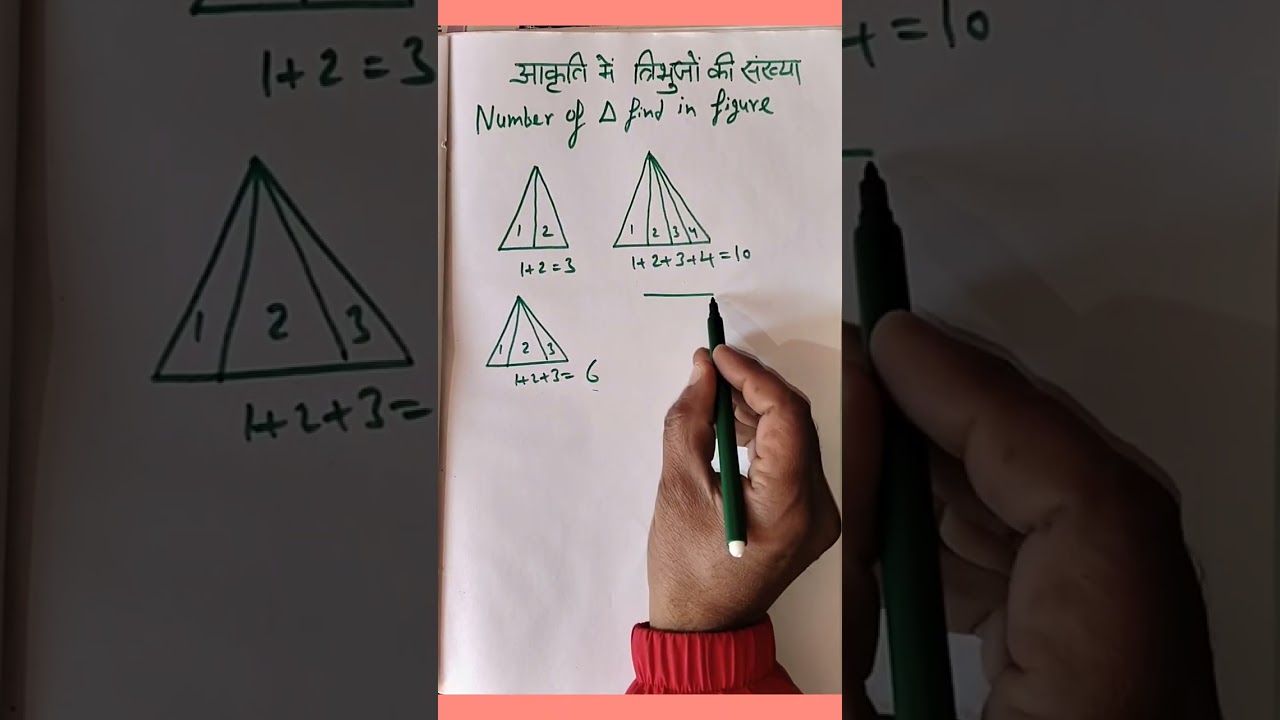 आकृति में त्रिभुजों की संख्या
Number of Δ find in figure
1 2
1 2 3 4
1+2=3
1+2+3+4=10
1 2 3
1+2+3= 6
1+2=3
4=10
1 2 3
1+2+3=